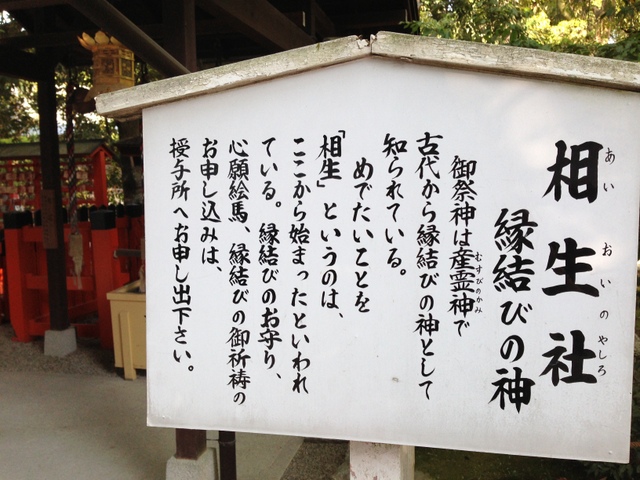 相生社
あい おいの やしろ
縁結びの神
御祭神は産霊神で
むすびのかみ
古代から縁結びの神として
知られている。
めでたいことを
「相生」というのは、
ここから始まったといわれ
ている。縁結びのお守り、
心願絵馬、縁結びの御祈祷の
お申し込みは、
授与所へお申し出下さい。